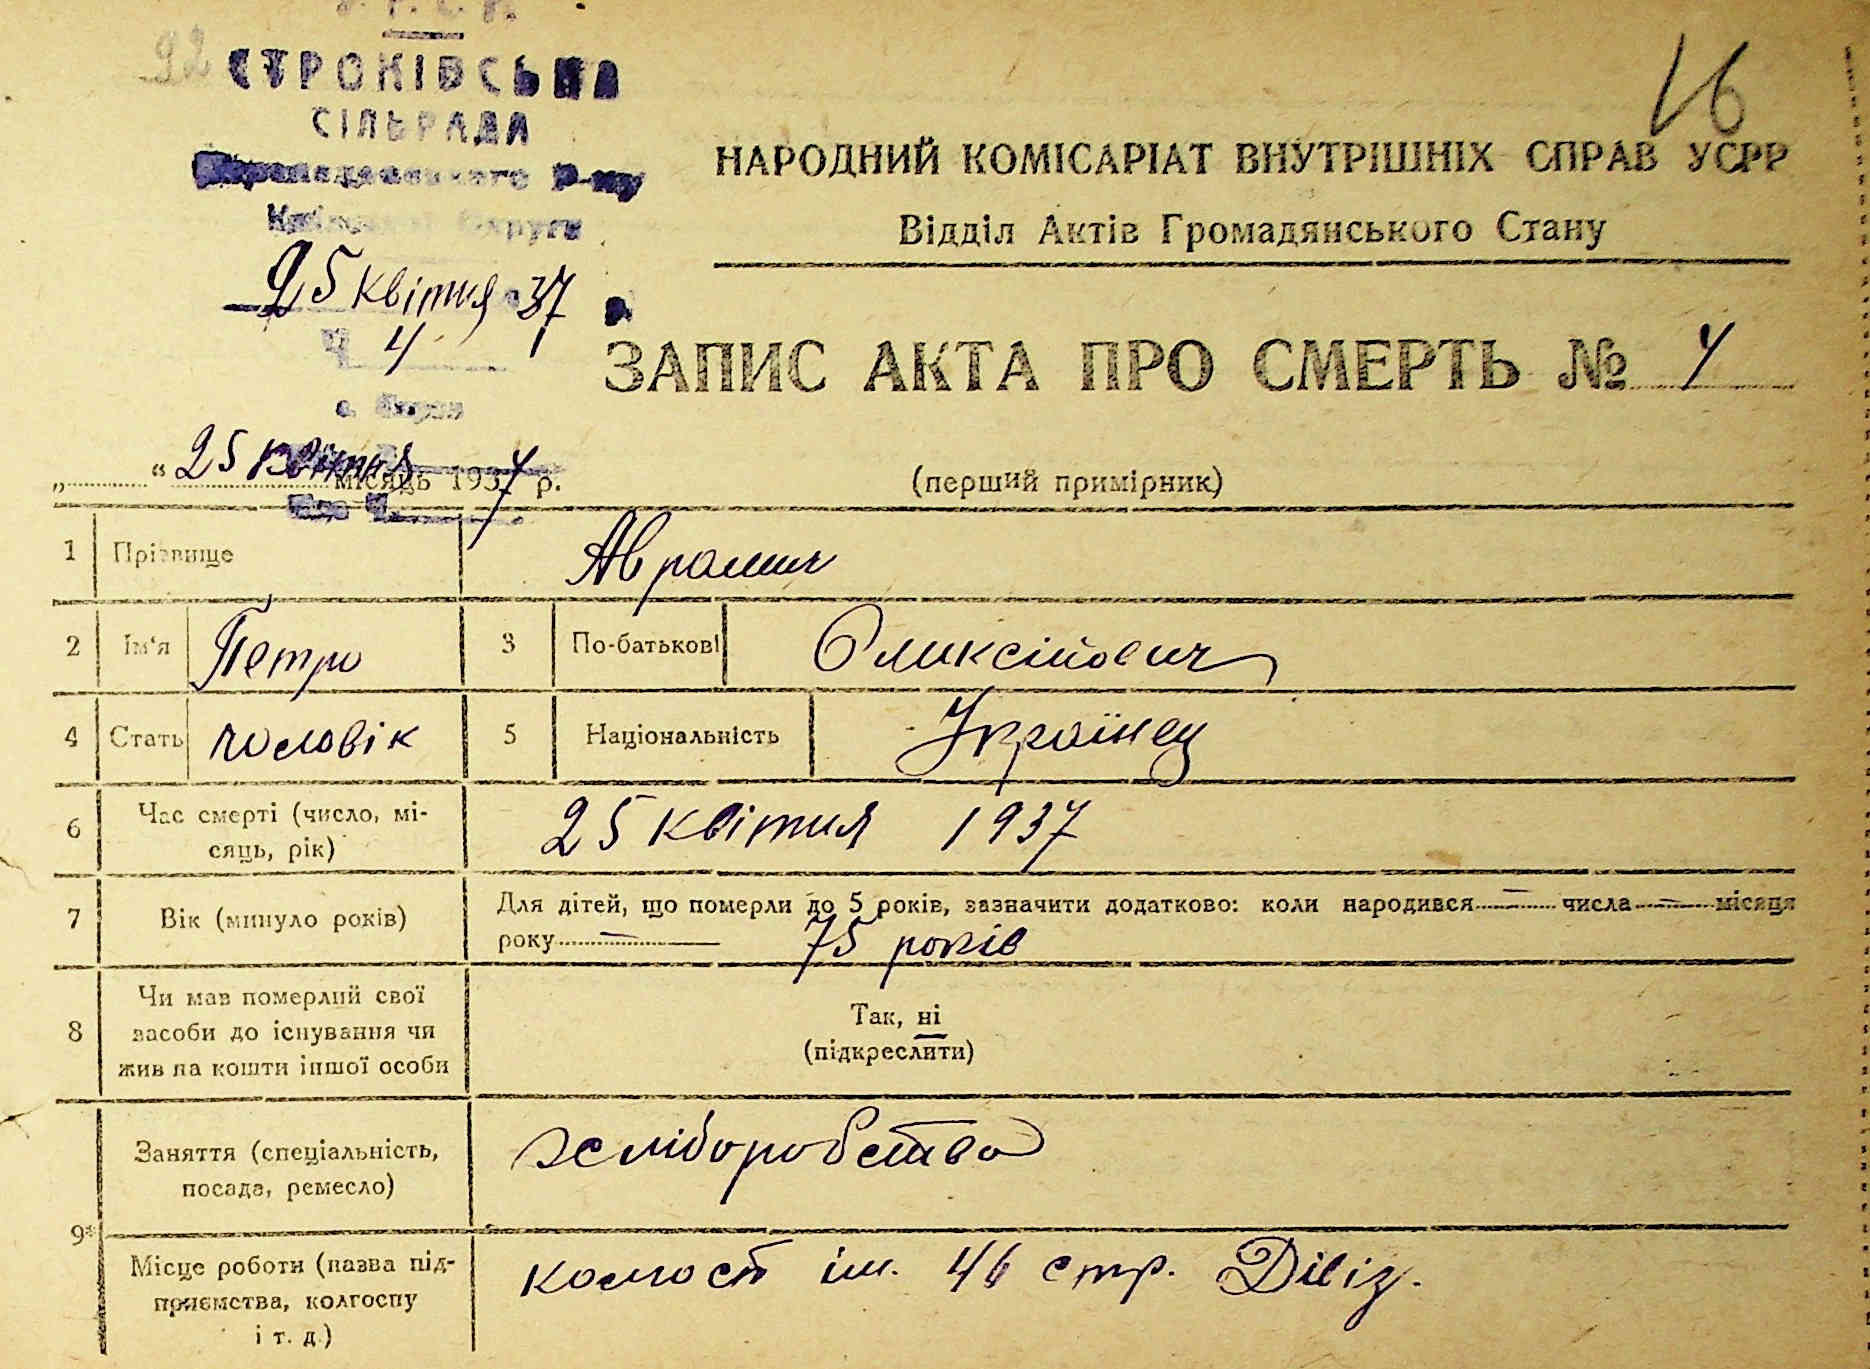 У. С. Р. Р.
92
СТРОКІВСЬКА
СІЛЬРАДА
Р-ну
Округи
25 квітня 37 р.
Ч 4
16
НАРОДНИЙ КОМІСАРІАТ ВНУТРІШНІХ СПРАВ УСРР
Відділ Актів Громадянського Стану
ЗАПИС АКТА ПРО СМЕРТЬ № 4
„ “ 25 квітня місяць 1937 р.
(перший примірник)
1 Прізвище Аврамич
2 Ім‘я Петро 3 По-батькові Оликсійович
4 Стать чоловік 5 Національність Українец
6 Час смерті (число, мі-
сяць, рік) 25 квітня 1937
7 Вік (минуло років) Для дітей, що померли до 5 років, зазначити додатково: коли народився — числа — місяця
року — 75 років
8 Чи мав померлий свої
засоби до існування чи
жив на кошти іншої особи
Так, ні
(підкреслити)
9* Заняття (спеціальність,
посада, ремесло) хліборобство
Місце роботи (назва під-
приємства, колгоспу
і т. д.) колгосп ім. 46 стр. Дівіз.